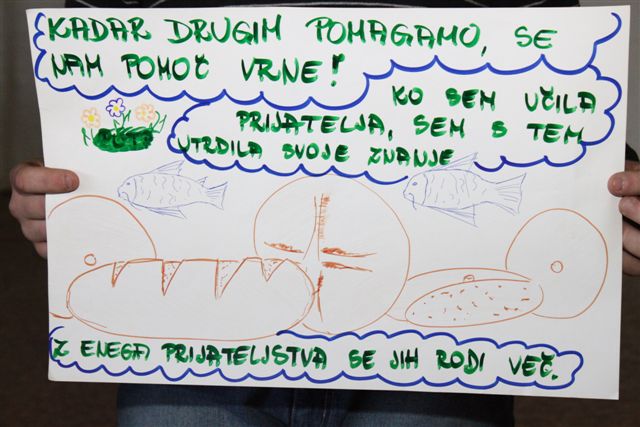 KADAR DRUGIM POMAGAMO, SE
NAM POMOČ VRNE!
KO SEM UČILA
PRIJATELJA, SEM S TEM
UTRDILA SVOJE ZNANJE
Z ENEGA PRIJATELJSTVA SE JIH RODI VEČ.